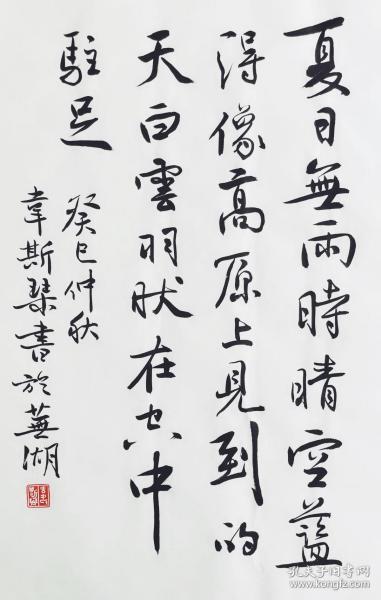 夏日無雨時晴空藍
得像高原上見到的
天白雲羽狀在空中
駐足
癸巳仲秋
韋斯琴書於蕪湖
孔夫子旧书网